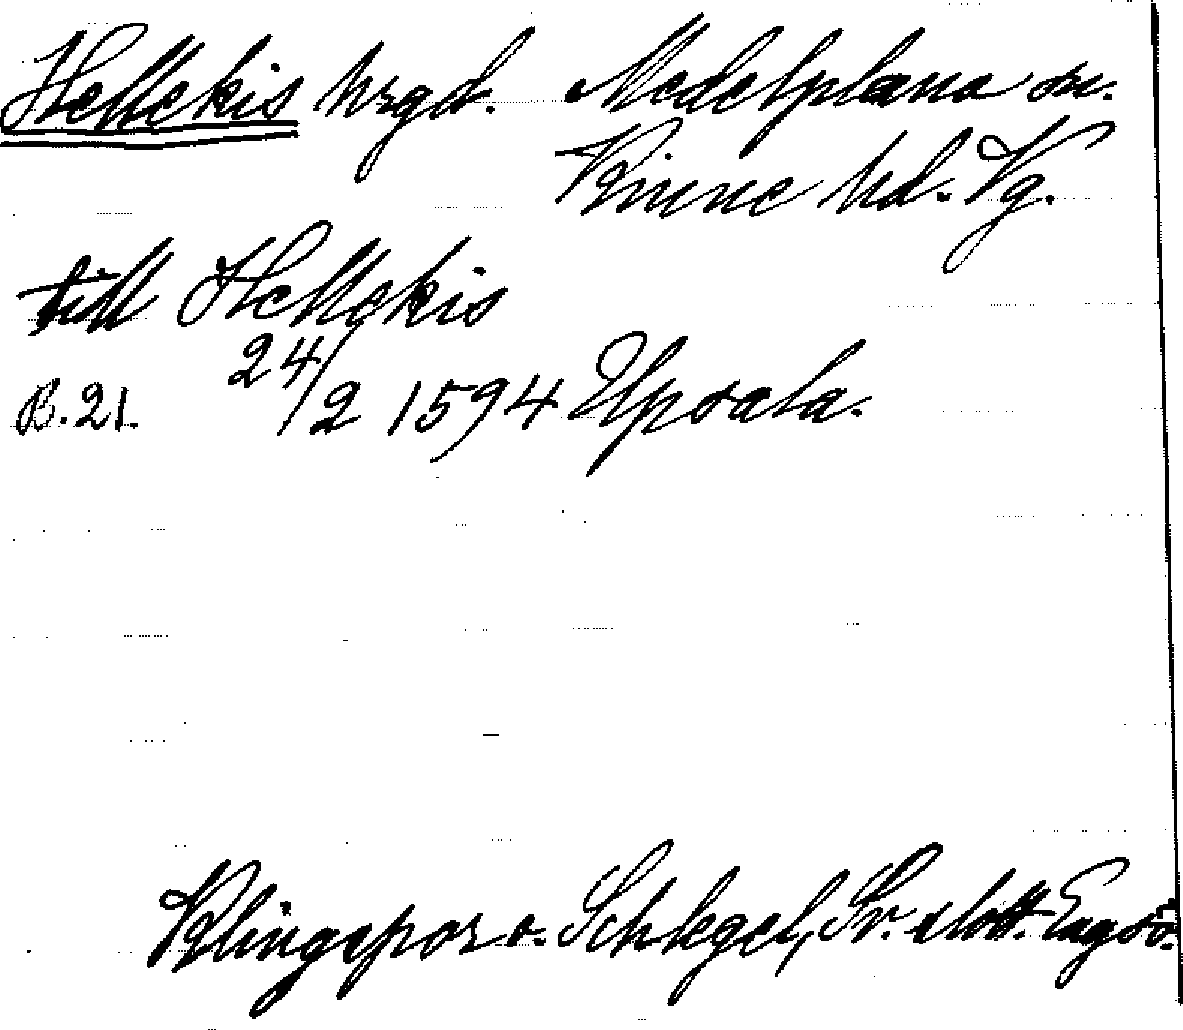 Hellekis hrgd. Medelplana sn.
Kinne hd. Vg.
till Hellekis
B. 21. 24/2 1594 Upsala.
Klingspor o. Schlegel, Sv. slott. Engsö.